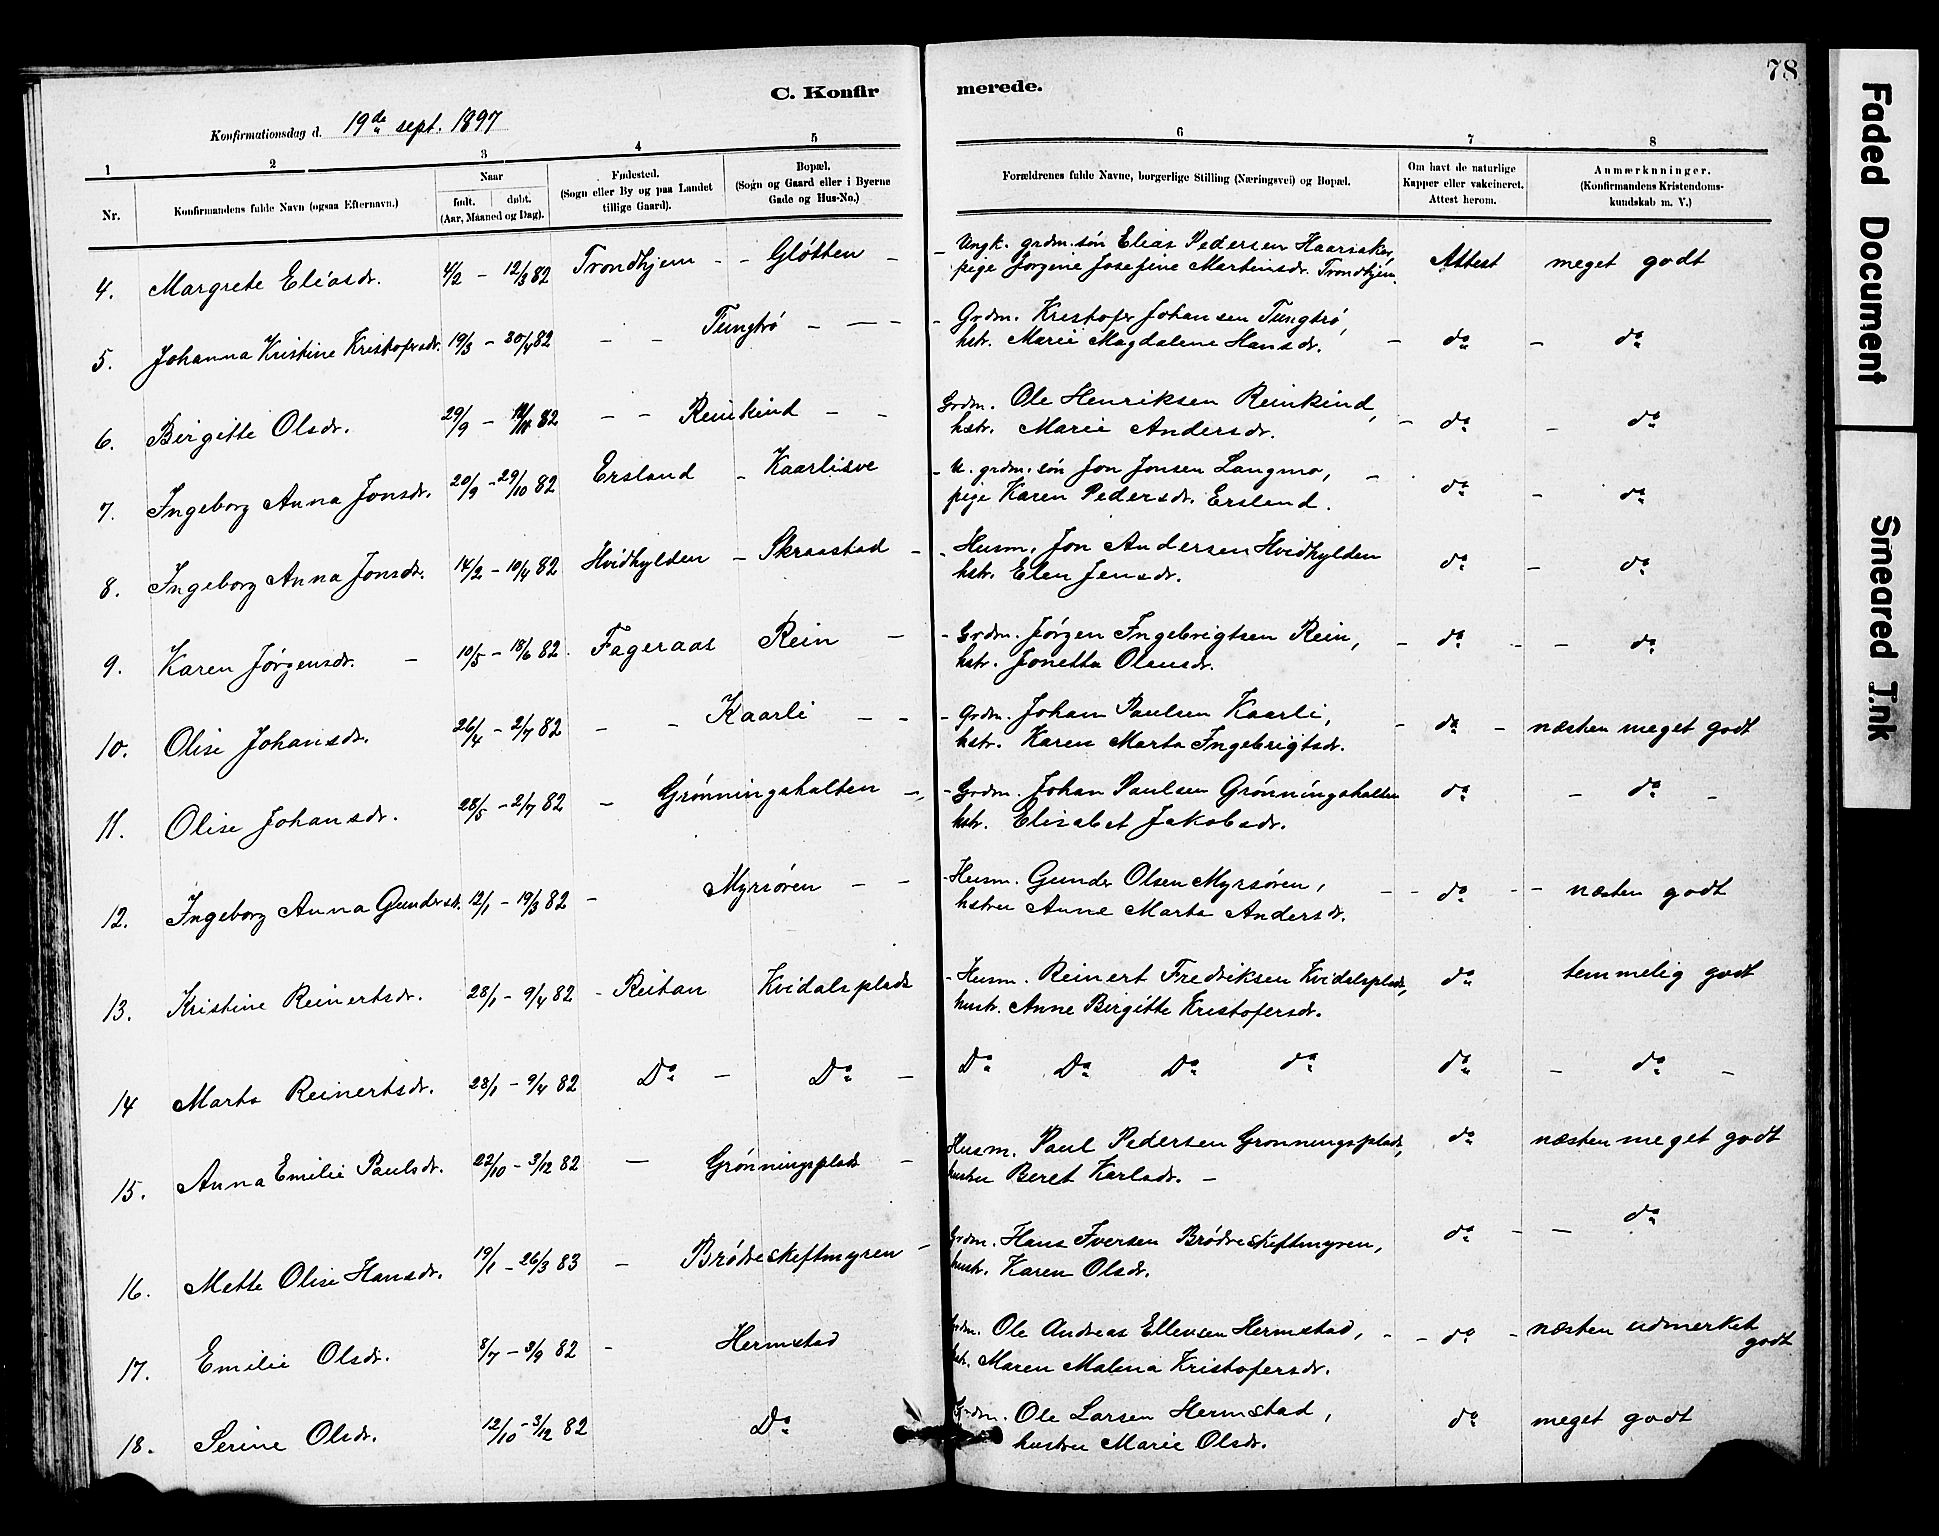 78
C. Konfirmerede.
Konfirmationsdag d. 19de sept. 1897
1 2 3 4 5 6 7 8
Nr.
Konfirmandens fulde Navn (ogsaa Efternavn.)
Naar
født. døbt.
(Aar, Maaned og Dag).
Fødested.
(Sogn eller By og paa Landet
tillige Gaard).
Bopæl.
(Sogn og Gaard eller i Byerne
Gade og Hus-No.)
Forældrenes fulde Navne, borgerlige Stilling (Næringsvei) og Bopæl.
Om havt de naturlige
Kapper eller vakcineret.
Attest herom.
Anmærknninger.
(Konfirmandens Kristendoms-
kundskab m. V.)
4. Margrete Eliasdr. 4/2 - 12/3 82 Trondhjem - - Gløtten - - Ungk. grdm. søn Elias Pedersen Haarsaker, Attest meget godt
pige Jorgine Josefine Martinsdr. Trondhjem.
5. Johanna Kristine Kristofersdr. 19/3 - 30/4 82 - - Tungtrø - - - - Grdm. Kristofer Johansen Tungtrø, - do - do
hstr. Marie Magdalene Hansdr.
6. Birgitte Olsdr. 29/9 - 12/11 82 - - Reinkind - - Grdm. Ole Henriksen Reinkind, - do - do
hstr. Marie Andersdr.
7. Ingeborg Anna Jonsdr. 20/9 - 29/10 82 Ersland - Kaarlisve - U. grdm. søn Jon Jonsen Langmo, - do - do
pige Karen Pedersdr. Ersland.
8. Ingeborg Anna Jonsdr. 14/2 - 10/4 82 Hvidhylden - Skraastad - - Husm. Jon Andersen Hvidhylden do - do
hstr. Elen Jensdr.
9. Karen Jørgensdr. - 10/5 - 18/6 82. Fageraas Rein - - Grdm. Jørgen Ingebrigtsen Rein, - do - - do
hstr. Jonetta Olausdr.
10. Olise Johansdr. 26/4 - 2/7 82 - - Kaarli - - - Grdm. Johan Paulsen Kaarli, - do - næsten meget godt
hstr. Karen Marta Ingebrigtsdr.
11. Olise Johansdr. 28/5 - 2/7 82 - Grønningshalten - - Grdm. Johan Paulsen Grønningshalten do - do -
hstr. Elisabet Jakobsdr.
12. Ingeborg Anna Gundersdr. 12/1 - 19/3 82 - Myrsøren - - - Husm. Gunder Olsen Myrsøren, - - do - - næsten godt
hstru Anne Marta Andersdr.
13. Kristine Reinertsdr. 28/1 - 9/4 82 - Reitan Kvidalsplads - Husm. Reinert Fredriksen Kvidalsplads, do temmelig godt
hustr. Anne Birgitte Kristofersdr.
14 Marta Reinertsdr. 28/1 - 9/4 82 Do - Do - Do Do Do do do - do -
15. Anna Emilie Paulsdr. 22/10 - 3/12 82 - Grønningsplads - Husm. Paul Pedersen Grønningsplads, do næsten meget godt
hustru Beret Karlsdr. -
16. Mette Olise Hansdr. 19/1 - 26/3 83 - Brødreskeftmyren - Grdm. Hans Iversen Brødreskeftmyren, do - - do
hustr. Karen Olsdr.
17. Emilie Olsdr. 8/7 - 3/9 82 - Hermstad Grdm. Ole Andreas Ellevsen Hermstad, - - do - næsten udmerket
godt
hstr. Maren Malena Kristofersdr.
18. Serine Olsdr. 12/10 - 3/12 82 Do Grdm. Ole Larsen Hermstad, do meget godt
hustru Marie Olsdr.
Faded Document
Smeared Ink